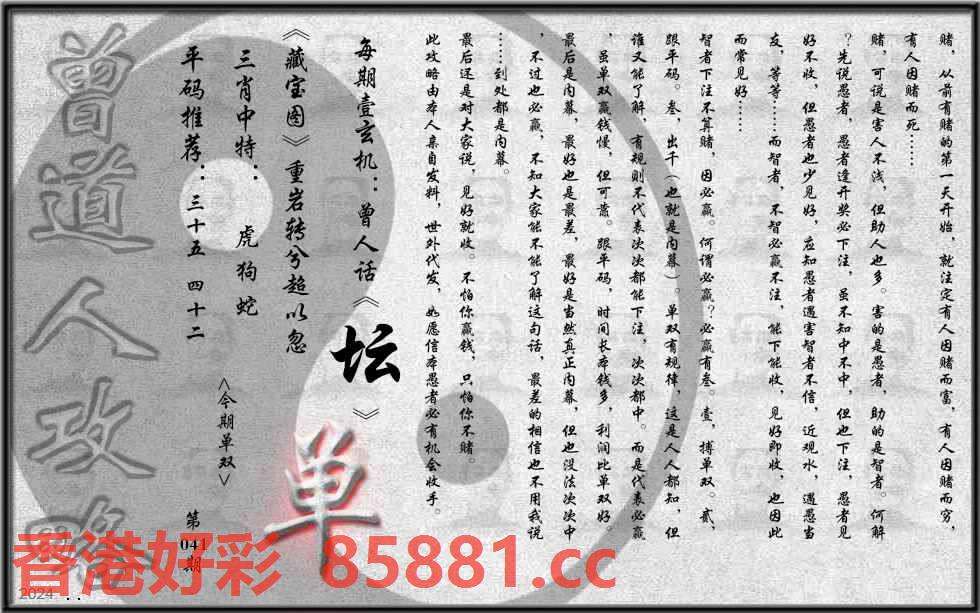 赌，从前有赌的第一天开始，就注定有人因赌而富，有人因赌而穷，
有人因赌而死……
赌，可说是害人不浅，但助人也多。害的是愚者，助的是智者。何解
？先说愚者，愚者逢开奖必下注，虽不知中不中，但也下注，愚者见
好不收，但愚者也少见好，应知愚者遇害智者不信，近观水，遇愚当
友，等等……而智者，不智必赢不注，能下能收，见好即收，也因此
而常见好……
智者下注不算赌，因必赢。何谓必赢？必赢有叁。壹，搏单双。贰，
跟平码。叁，出千（也就是内幕）。单双有规律，这是人人都知，但
谁又能了解，有规则不代表次次都能下注，次次都中。而是代表必赢
，虽单双赢钱慢，但可靠。跟平码，时间长本钱多，利润比单双好。
最后是内幕，最好也是最差，最好是当然真正内幕，但也没法次次中
，不过也必赢，不知大家能不能了解这句话，最差的相信也不用我说
……到处都是内幕。
最后还是对大家说，见好就收。不怕你赢钱，只怕你不赌。
此攻略由本人亲自发料，世外代发，如愿信本愚者必有机会收手。
每期壹玄机：曾人话《坛》
《藏宝图》重岩转兮超以忽
三肖中特：虎 狗 蛇
平码推荐：三十五 四十二
<今期单双>
单
第
041
期
曾道人攻略
香港好彩 85881.cc
2024